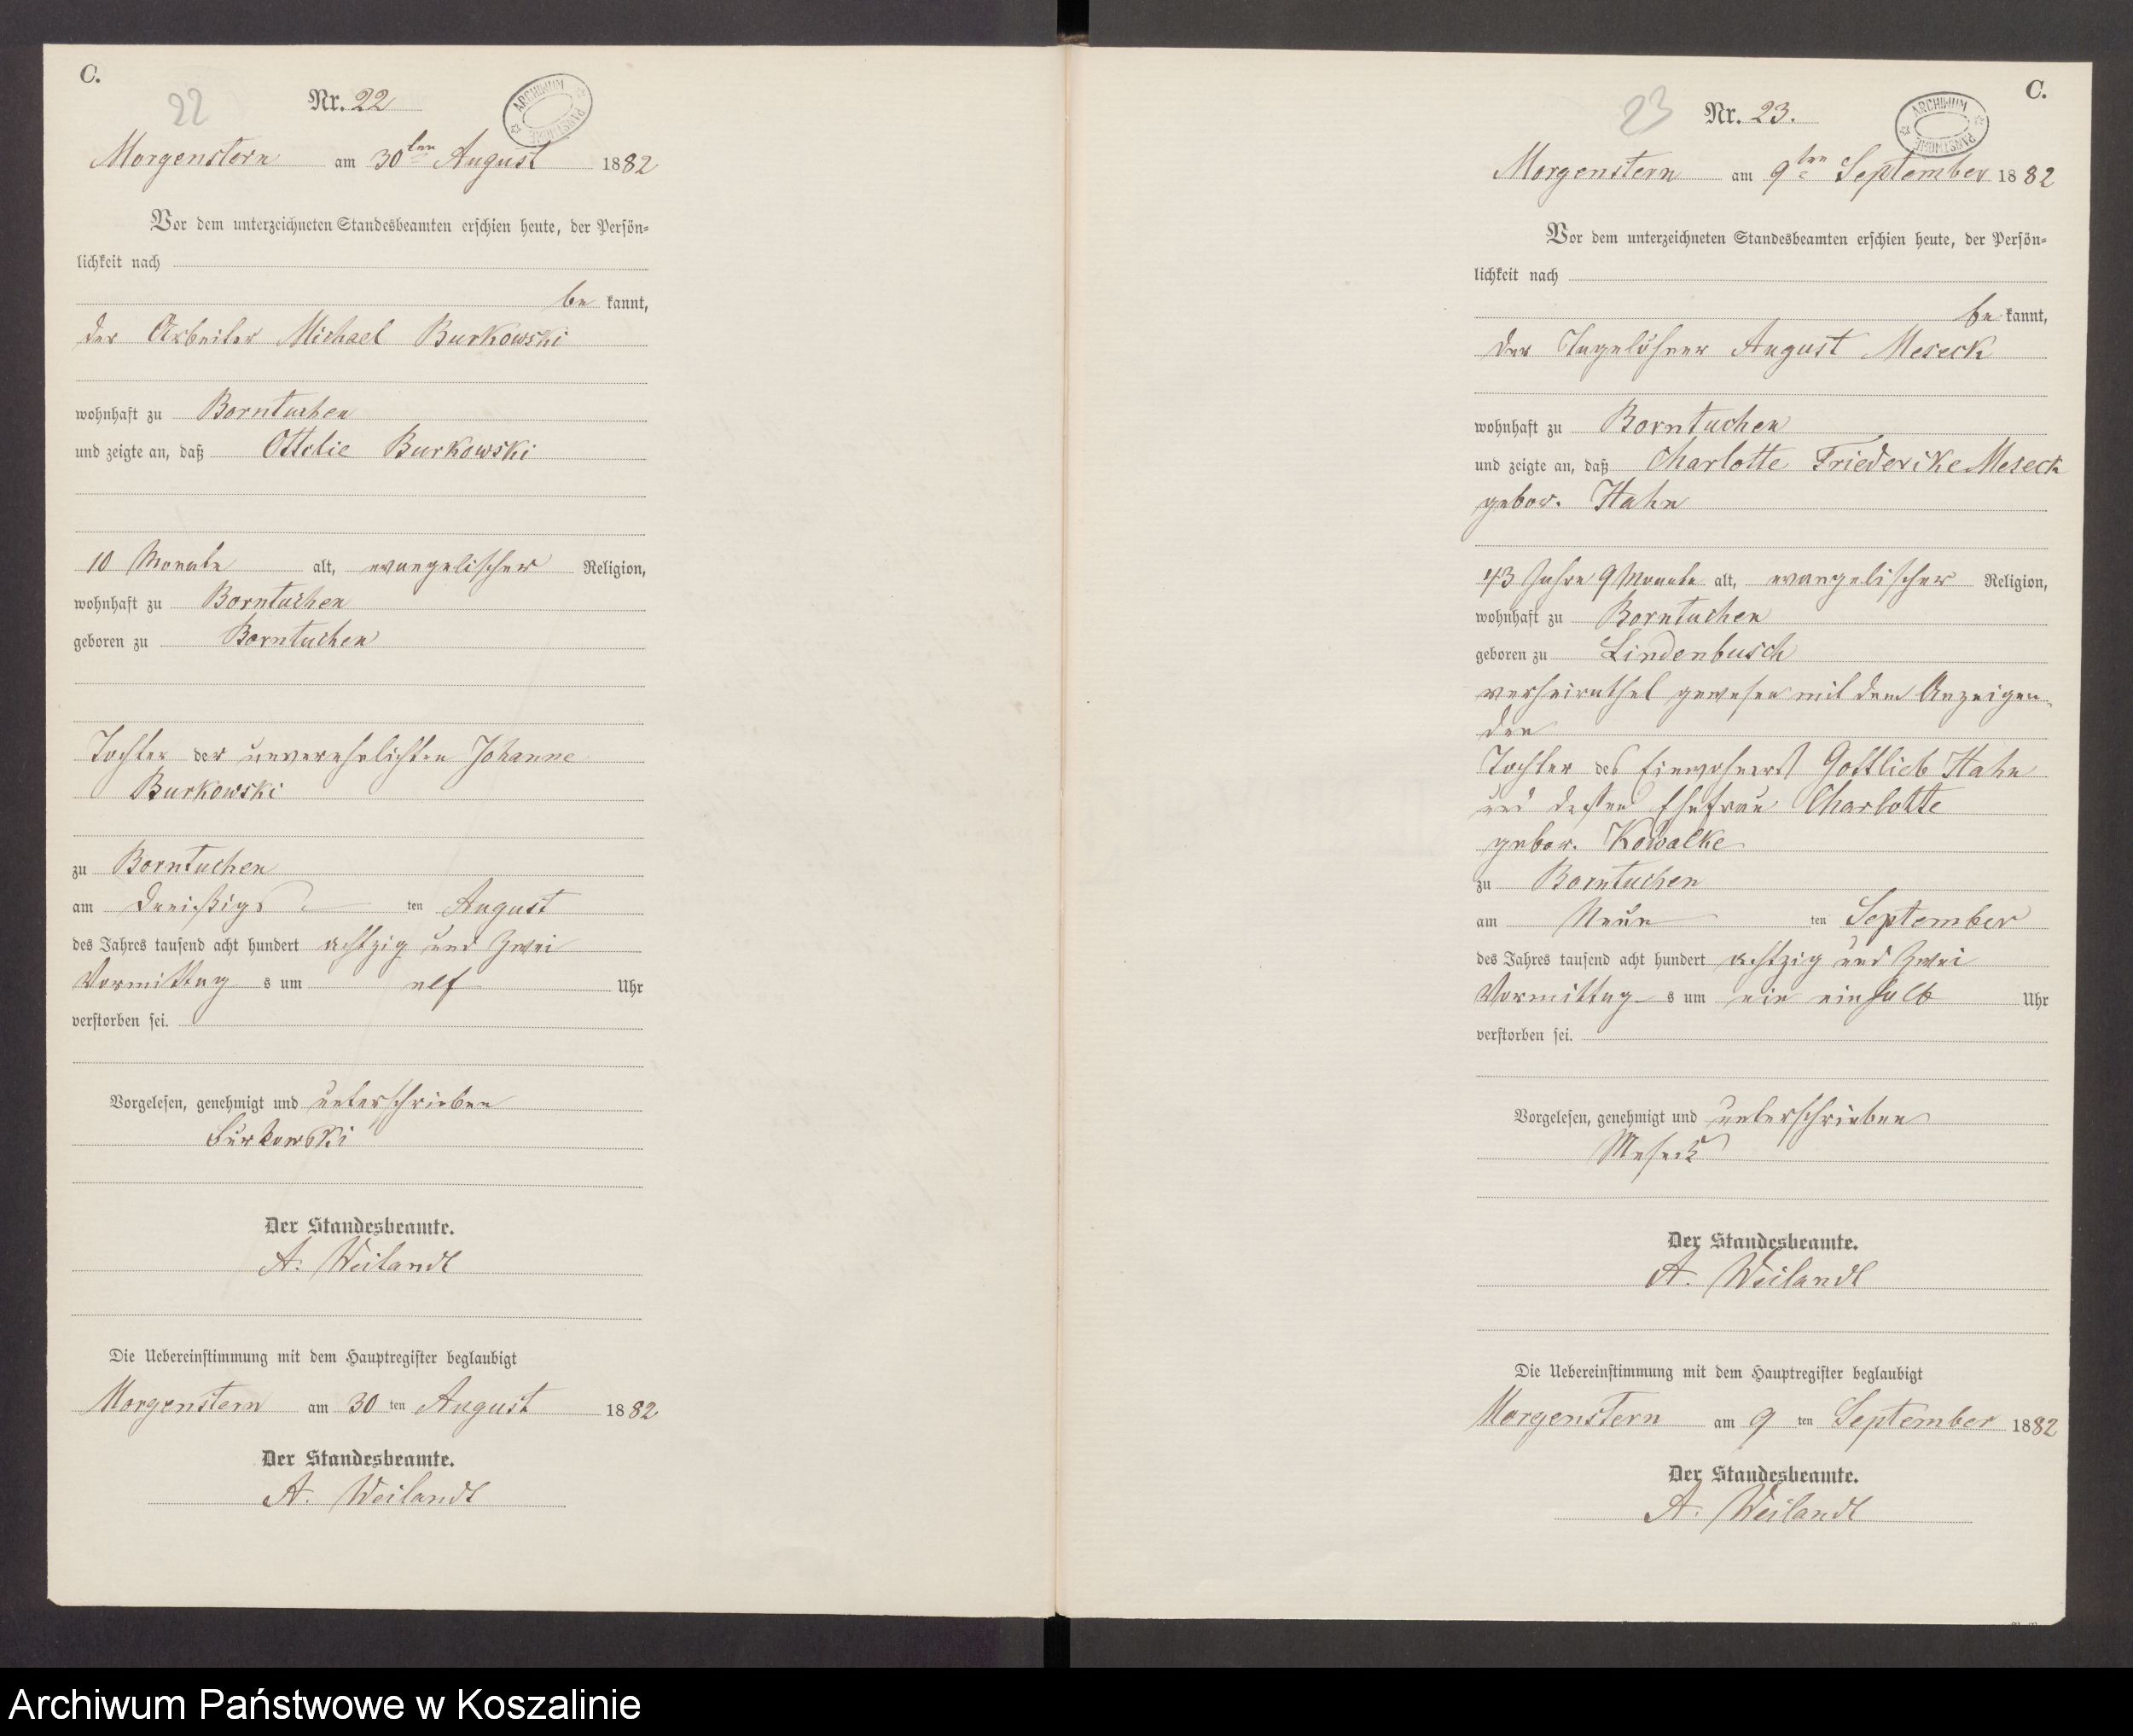 C.
22
Nr. 22
ARCHIWUM PAŃSTWOWE
Morgenstern am 30ten August 1882
Vor dem unterzeichneten Standesbeamten erschien heute, der Persön-
lichkeit nach
be kannt,
der Arbeiter Michael Burkowski
wohnhaft zu Borntuchen
und zeigte an, daß Ottilie Burkowski
10 Monate alt, evangelischer Religion,
wohnhaft zu Borntuchen
geboren zu Borntuchen
Tochter der unverehelichten Johanne
Burkowski
zu Borntuchen
am dreißigs ten August
des Jahres tausend acht hundert achtzig und zwei
Vormittag s um elf Uhr
verstorben sei.
Vorgelesen, genehmigt und unterschrieben
Burkowski
Der Standesbeamte.
A. Weilandt
Die Uebereinstimmung mit dem Hauptregister beglaubigt
Morgenstern am 30 ten August 1882
Der Standesbeamte.
A. Weilandt
C.
23
Nr. 23.
ARCHIWUM PAŃSTWOWE
Morgenstern am 9ten September 1882
Vor dem unterzeichneten Standesbeamten erschien heute, der Persön-
lichkeit nach
be kannt,
der Tagelöhner August Meseck
wohnhaft zu Borntuchen
und zeigte an, daß Charlotte Friederike Meseck
gebor. Hahn
43 Jahre 9 Monate alt, evangelischer Religion,
wohnhaft zu Borntuchen
geboren zu Lindenbusch
verheirathet gewesen mit dem Anzeigen-
den
Tochter des Einwohners Gottlieb Hahn
und dessen Ehefrau Charlotte
gebor. Kowalke
zu Borntuchen
am Neun ten September
des Jahres tausend acht hundert achtzig und zwei
Vormittag s um ein einhalb Uhr
verstorben sei.
Vorgelesen, genehmigt und unterschrieben
Meseck
Der Standesbeamte.
A. Weilandt
Die Uebereinstimmung mit dem Hauptregister beglaubigt
Morgenstern am 9 ten September 1882
Der Standesbeamte.
A. Weilandt
Archiwum Państwowe w Koszalinie